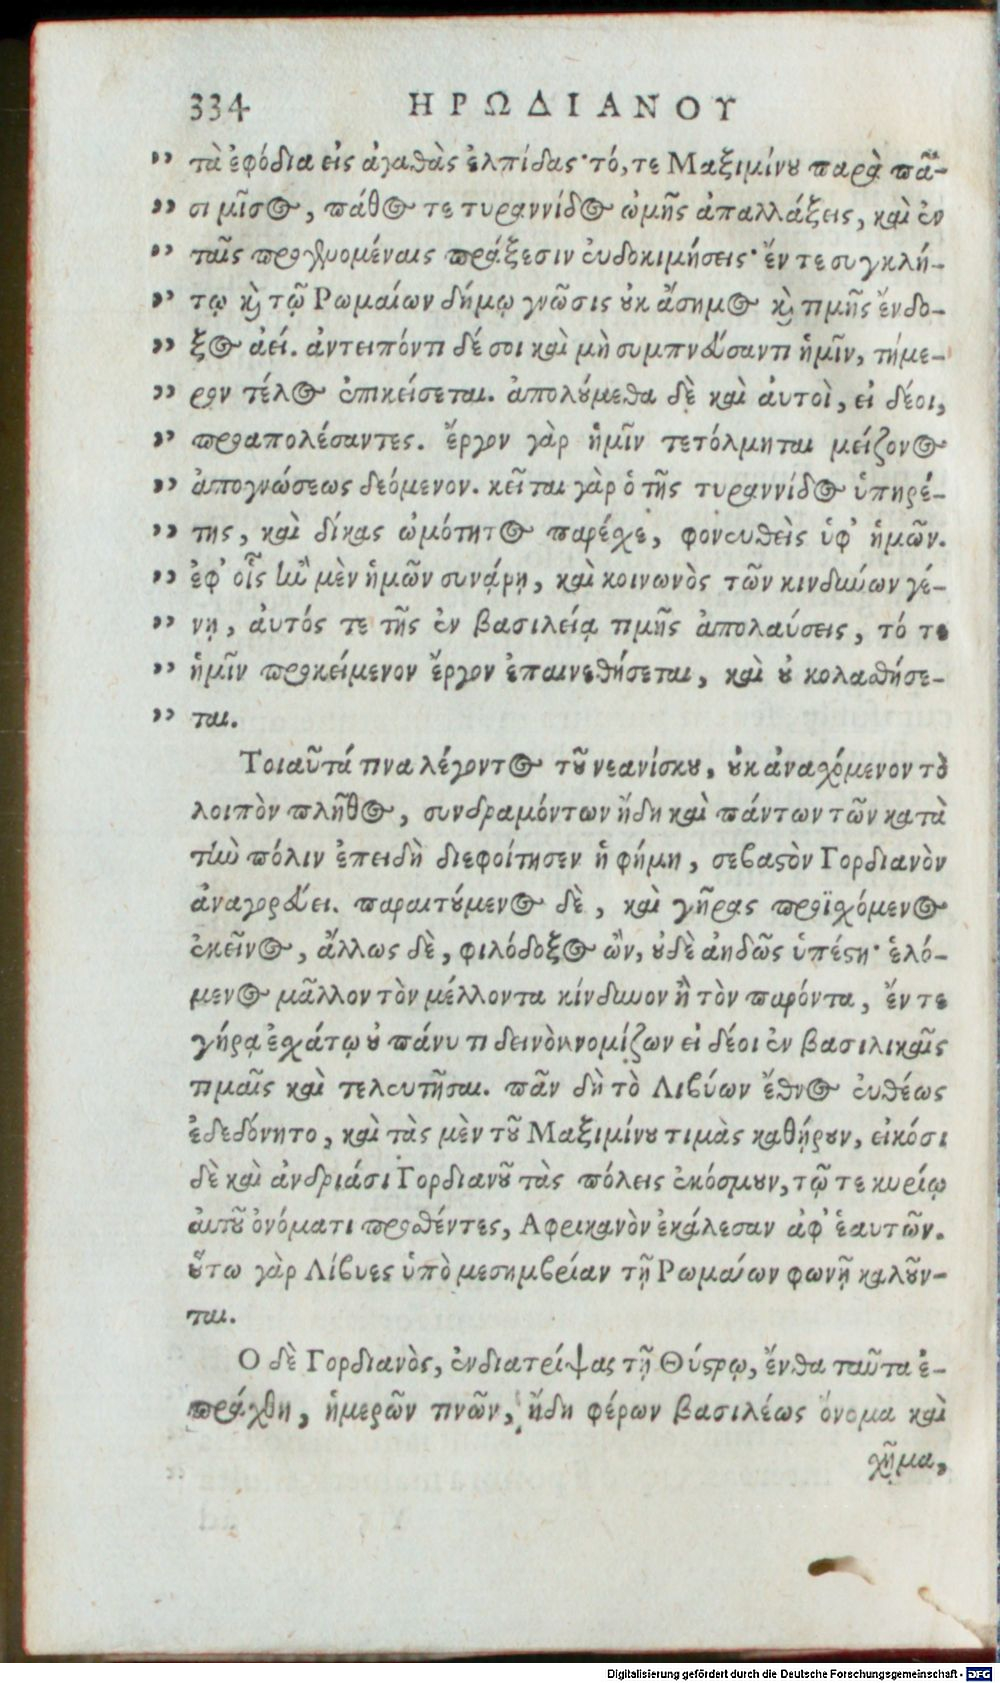 334 ΗΡΩΔΙΑΝΟΥ
" τὰ ἐφόδια εἰς ἀγαθὰς ἐλπίδας· τό, τε Μαξιμίνου παρὰ πᾶ-
" σι μῖσος, πάθος τε τυραννίδος ὠμῆς ἀπαλλάξεις, καὶ ἐν
" ταῖς προγενομέναις πράξεσιν εὐδοκιμήσεις· ἔν τε συγκλή-
" τῳ καὶ τῷ Ρωμαίων δήμῳ γνῶσις οὐκ ἄσημος καὶ τιμῆς ἔνδο-
" ξος ἀεί. ἀντειπόντι δέ σοι καὶ μὴ συμπνεύσαντι ἡμῖν, τήμε-
" ρον τέλος ἐπικείσεται. ἀπολούμεθα δὲ καὶ αὐτοὶ, εἰ δέοι,
" προαπολέσαντες. ἔργον γὰρ ἡμῖν τετόλμηται μείζονος
" ἀπογνώσεως δεόμενον. κεῖται γὰρ ὁ τῆς τυραννίδος ὑπηρέ-
" της, καὶ δίκας ὠμότητος παρέσχε, φονευθεὶς ὑφ' ἡμῶν.
" ἐφ' οἷς ἢν μὲν ἡμῶν συνάρῃ, καὶ κοινωνὸς τῶν κινδύνων γέ-
" νῃ, αὐτός τε τῆς ἐν βασιλείᾳ τιμῆς ἀπολαύσεις, τό τε
" ἡμῖν προκείμενον ἔργον ἐπαινεθήσεται, καὶ οὐ κολασθήσε-
" ται.
Τοιαῦτά τινα λέγοντος τοῦ νεανίσκου, οὐκ ἀνασχόμενον τὸ
λοιπὸν πλῆθος, συνδραμόντων ἤδη καὶ πάντων τῶν κατὰ
τὴν πόλιν ἐπειδὴ διεφοίτησεν ἡ φήμη, σεβαστὸν Γορδιανὸν
ἀναγορεύει. παραιτούμενος δὲ, καὶ γῆρας προϊσχόμενος
ἐκεῖνος, ἄλλως δὲ, φιλόδοξος ὢν, οὐδὲ ἀηδῶς ὑπέστη· ἑλό-
μενος μᾶλλον τὸν μέλλοντα κίνδυνον ἢ τὸν παρόντα, ἔν τε
γήρᾳ ἐσχάτῳ οὐ πάνυ τι δεινὸν νομίζων εἰ δέοι ἐν βασιλικαῖς
τιμαῖς καὶ τελευτῆσαι. πᾶν δὴ τὸ Λιβύων ἔθνος εὐθέως
ἐδεδόνητο, καὶ τὰς μὲν τοῦ Μαξιμίνου τιμὰς καθῄρουν, εἰκόσι
δὲ καὶ ἀνδριάσι Γορδιανοῦ τὰς πόλεις ἐκόσμουν, τῷ τε κυρίῳ
αὐτοῦ ὀνόματι προσθέντες, Αφρικανὸν ἐκάλεσαν ἀφ' ἑαυτῶν.
οὕτω γὰρ Λίβυες ὑπὸ μεσημβρίαν τῇ Ρωμαίων φωνῇ καλοῦν-
ται.
Ο δὲ Γορδιανὸς, ἐνδιατρίψας τῇ Θύστρῳ, ἔνθα ταῦτα ἐ-
πράχθη, ἡμερῶν τινῶν, ἤδη φέρων βασιλέως ὄνομα καὶ
σχῆμα,
Digitalisierung gefördert durch die Deutsche Forschungsgemeinschaft - DFG